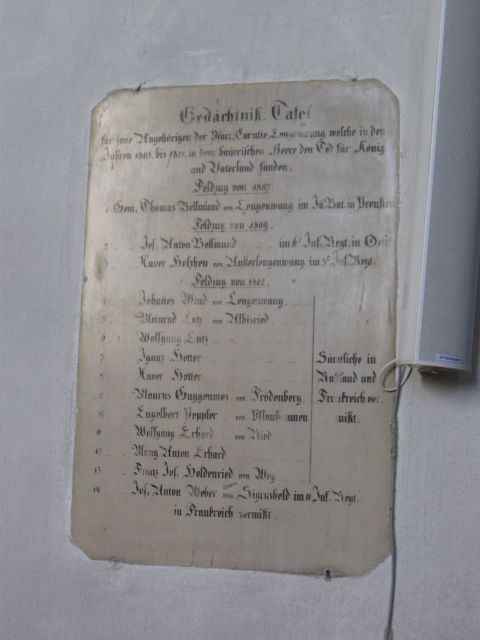 Gedächtniß Tafel
für jene Angehörigen der Pfarr Curatie Lengenwang welche in den
Jahren 1805 bis 1815 in dem bayerischen Heere den Tod für König
und Vaterland fanden.
Feldzug von 1807.
1 Gem. Thomas Bellmund von Lengenwang im Preußen
Feldzug von 1809.
2 Jos. Anton Bollmund im 6t Inf. Regt. in
3 Xaver Holzheu von Außerlengenwang im 3t Inf. Regt.
Feldzug von 1812.
4 Johanes Wind von Lengenwang
5 Meinrad Lutz von Albisried
6 Wolfgang Lutz
7 Ignaz Hotter
8 Xaver Hotter
9 Maurus Guggenmos von Frödenberg
10 Engelbert Peppler von
11 Wolfgang Erhard von Ried
12 Anton Erhard
13 Franz Jos. Heldenried von
Sämtliche in
Rußland und
Frankreich ver
mißt.
14 Jos. Anton Weber von im Inf. Regt.
in Frankreich vermißt.